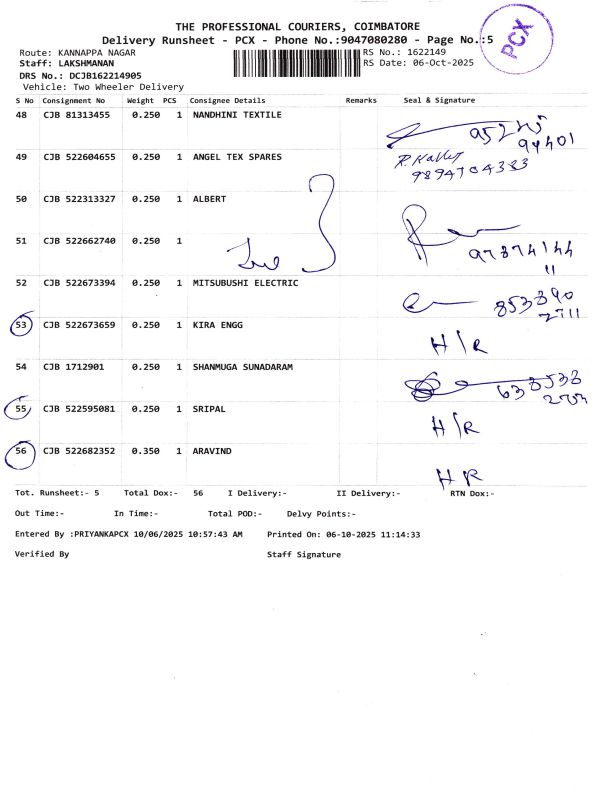 THE PROFESSIONAL COURIERS, COIMBATORE
Delivery Runsheet - PCX - Phone No.:9047080280 - Page No.:5
PCX
Route: KANNAPPA NAGAR
RS No.: 1622149
Staff: LAKSHMANAN
RS Date: 06-Oct-2025
DRS No.: DCJB162214905
Vehicle: Two Wheeler Delivery
S No Consignment No Weight PCS Consignee Details Remarks Seal & Signature
48 CJB 81313455 0.250 1 NANDHINI TEXTILE
49 CJB 522604655 0.250 1 ANGEL TEX SPARES
9894704383
50 CJB 522313327 0.250 1 ALBERT
51 CJB 522662740 0.250 1
9787414411
52 CJB 522673394 0.250 1 MITSUBUSHI ELECTRIC
853390
2711
53 CJB 522673659 0.250 1 KIRA ENGG
H/R
54 CJB 1712901 0.250 1 SHANMUGA SUNADARAM
638538
55 CJB 522595081 0.250 1 SRIPAL
H/R
56 CJB 522682352 0.350 1 ARAVIND
HR
Tot. Runsheet:- 5 Total Dox:- 56 I Delivery:- II Delivery:- RTN Dox:-
Out Time:- In Time:- Total POD:- Delvy Points:-
Entered By :PRIYANKAPCX 10/06/2025 10:57:43 AM Printed On: 06-10-2025 11:14:33
Verified By Staff Signature